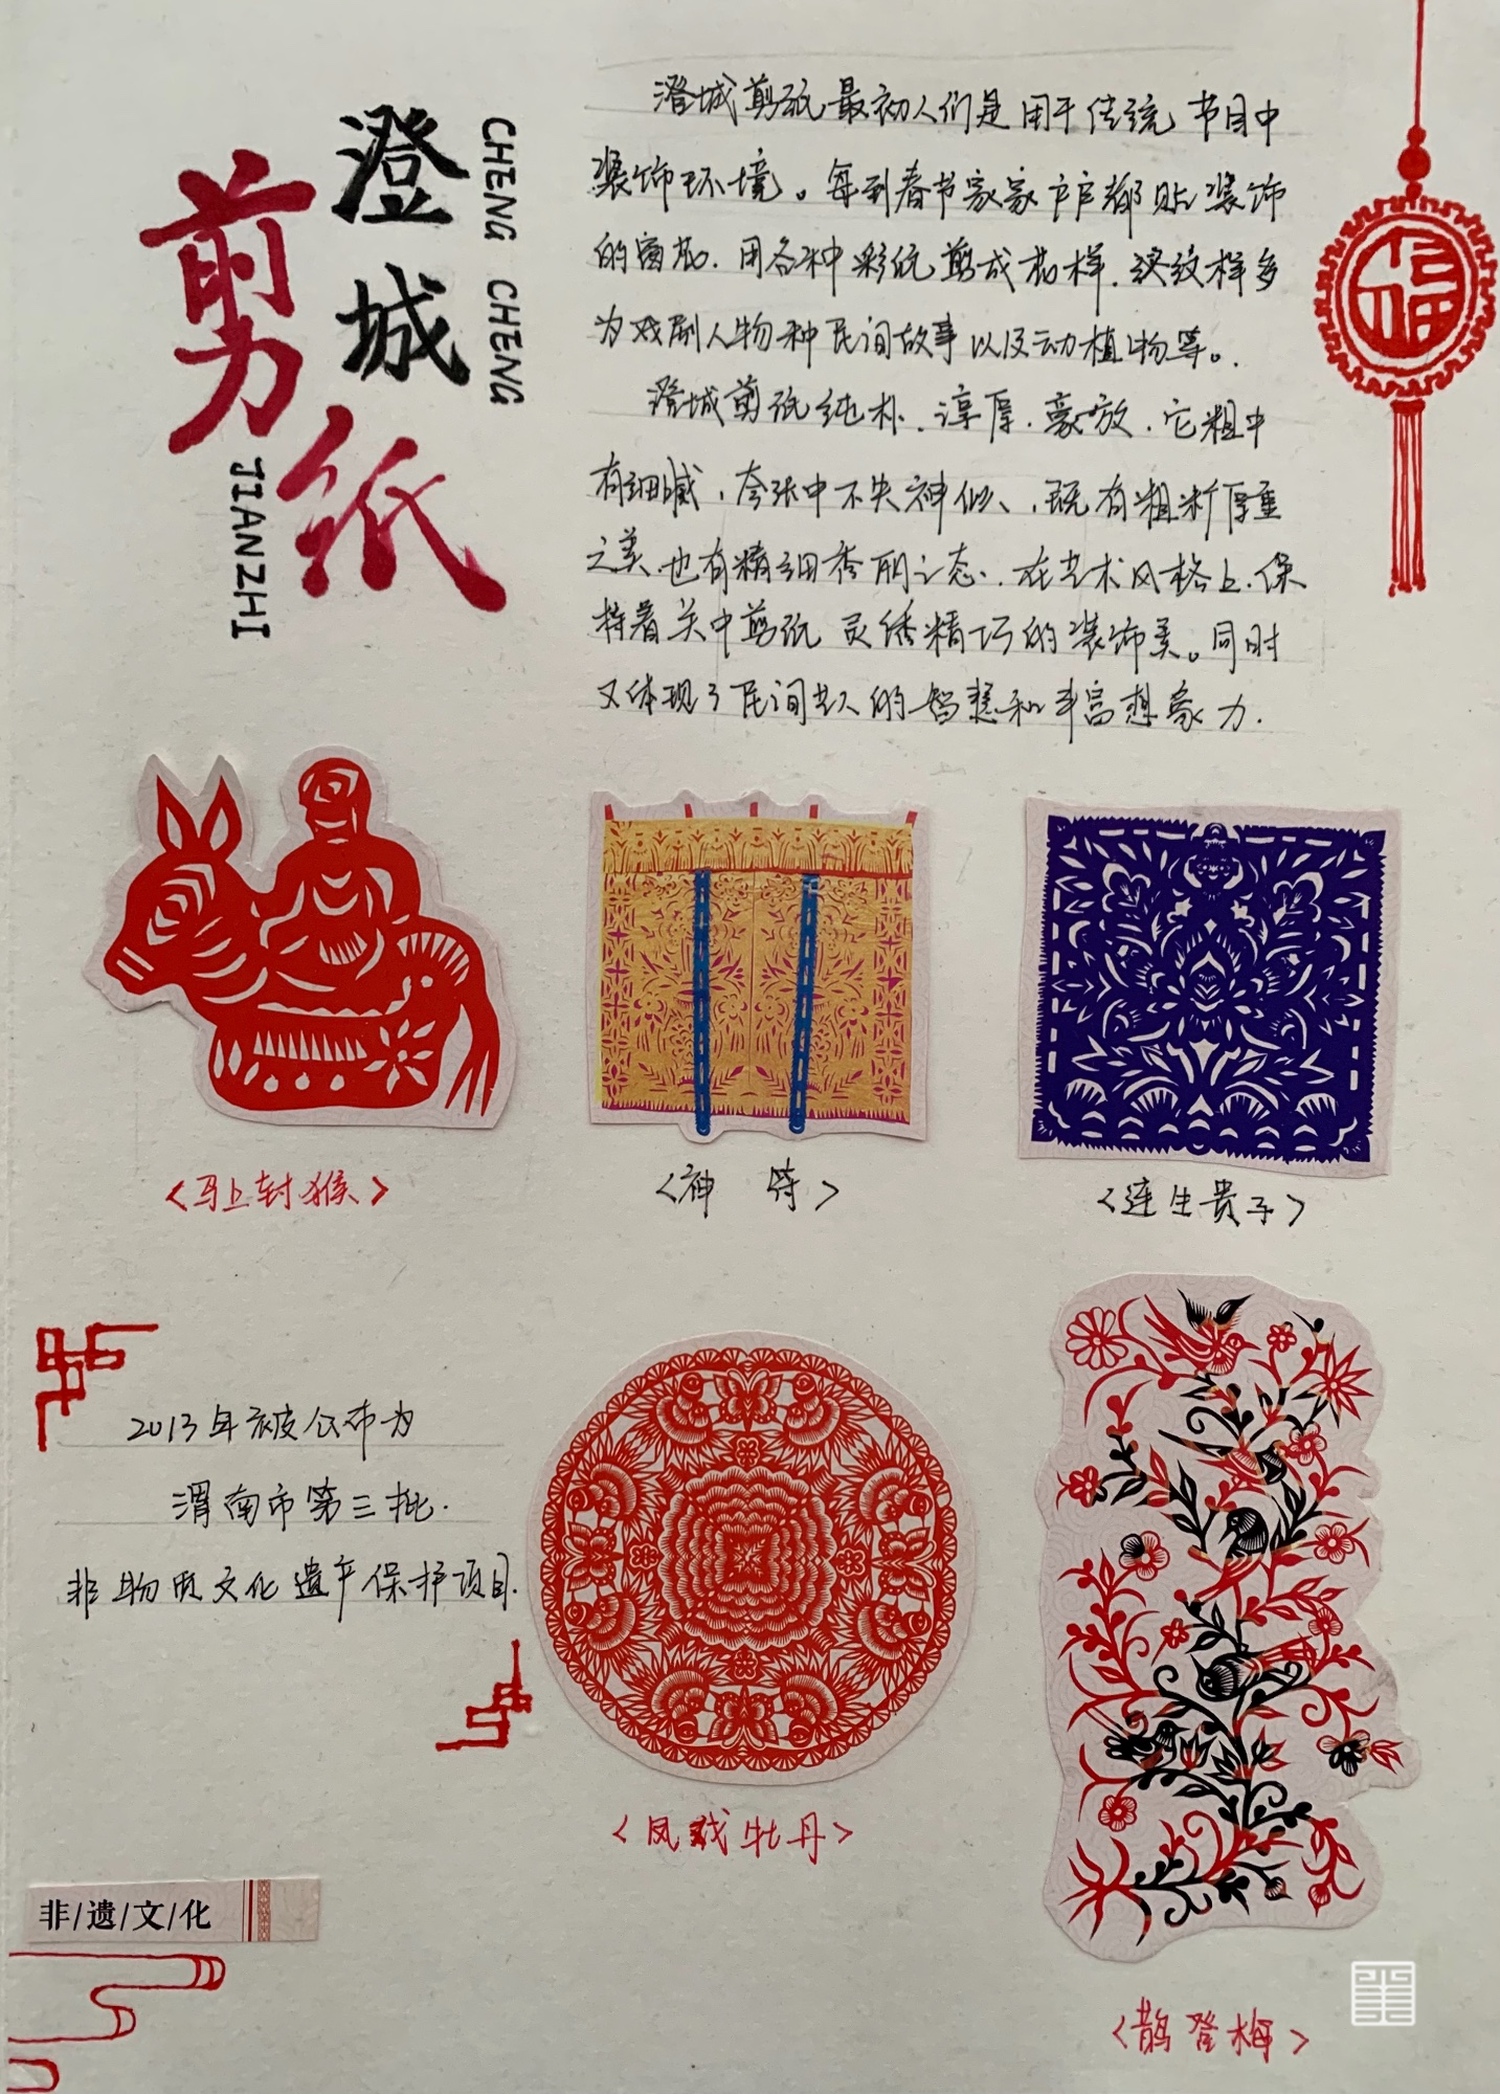 澄城
剪纸
CHENG CHENG
JIANZHI
澄城剪纸最初人们是用于传统节目中
装饰环境。每到春节家家户户都贴装饰
的窗花.用各种彩纸剪成花样.这纹样多
为戏剧人物种民间故事以及动植物等。
澄城剪纸纯朴.淳厚.豪放.它粗中
有细腻,夸张中不失神似、,既有粗犷厚重
之美.也有精细秀丽之态.在艺术风格上.保
持着关中剪纸灵秀精巧的装饰美。同时
又体现了民间艺人的智慧和丰富想象力.
福
<马上封猴>
<神 帘>
<连生贵子>
2013年被公布为
渭南市第三批.
非物质文化遗产保护项目.
<凤戏牡丹>
非/遗/文/化
<鹊登梅>